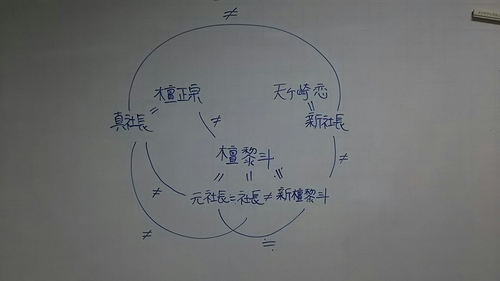 ≠
檀正宗 天ヶ崎恋
= ≠ =
真社長 新社長
檀黎斗 ≠
= = =
≠ 元社長=社長≠新檀黎斗
≠ ≒